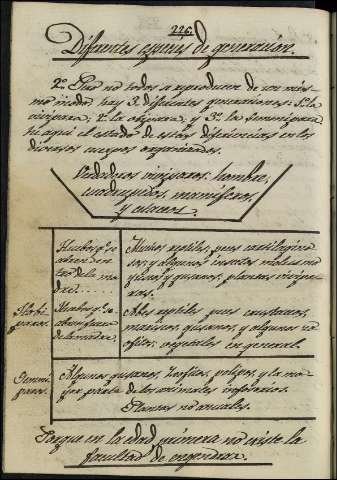 226.
Diferentes especies de generación.
2º Pero no todos se reproducen de un mis-
mo modo: hay 3 diferentes generaciones: 1ª la
vivipara, 2ª la ovipara, y 3ª la gemmipara
he aqui el estado de estas diferencias en los
diversos cuerpos organizados.
Verdaderos viviparos: hombre,
cuadrupedos, mamiferos,
y cetaceos.
Huebos qe se
abren den-
tro de la ma-
dre
Muchos reptiles, peces cartilagino-
sos, y algunos insectos, moluscos
y gusanos, plantas vivipa-
ras.
Ovi-
paros.
Huebos qe se
abren fuera
de la madre
Aves, reptiles, peces
mariscos, gusanos, y algunos zo-
ofitos: vegetales en general.
Gemmi-
paros.
Algunos gusanos, zoofitos, polipos, y la ma-
yor parte de los animales infusorios.
Plantas no anuales.
Porque en la edad primera no existe la
facultad de engendrar.